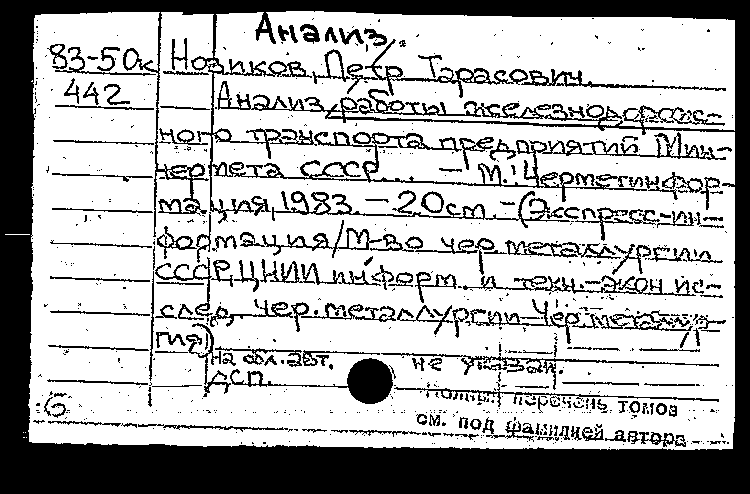 Анализ
83-5Ок Новиков, Петр Тарасович.
442 Анализ работы железнодорож-
ного транспорта предприятий Мин-
чермета СССР... — М.: Черметинфор-
мация, 1983. — 20 см. — (Экспресс-ин-
формация/М-во чер. металлургии
СССР, ЦНИИ информ. и техн.-экон ис-
след. чер. металлургии. Чер. металлур-
гия)
На обл. авт. не указан.
ДСП.
Полный перечень томов
6
см. под фамилией автора